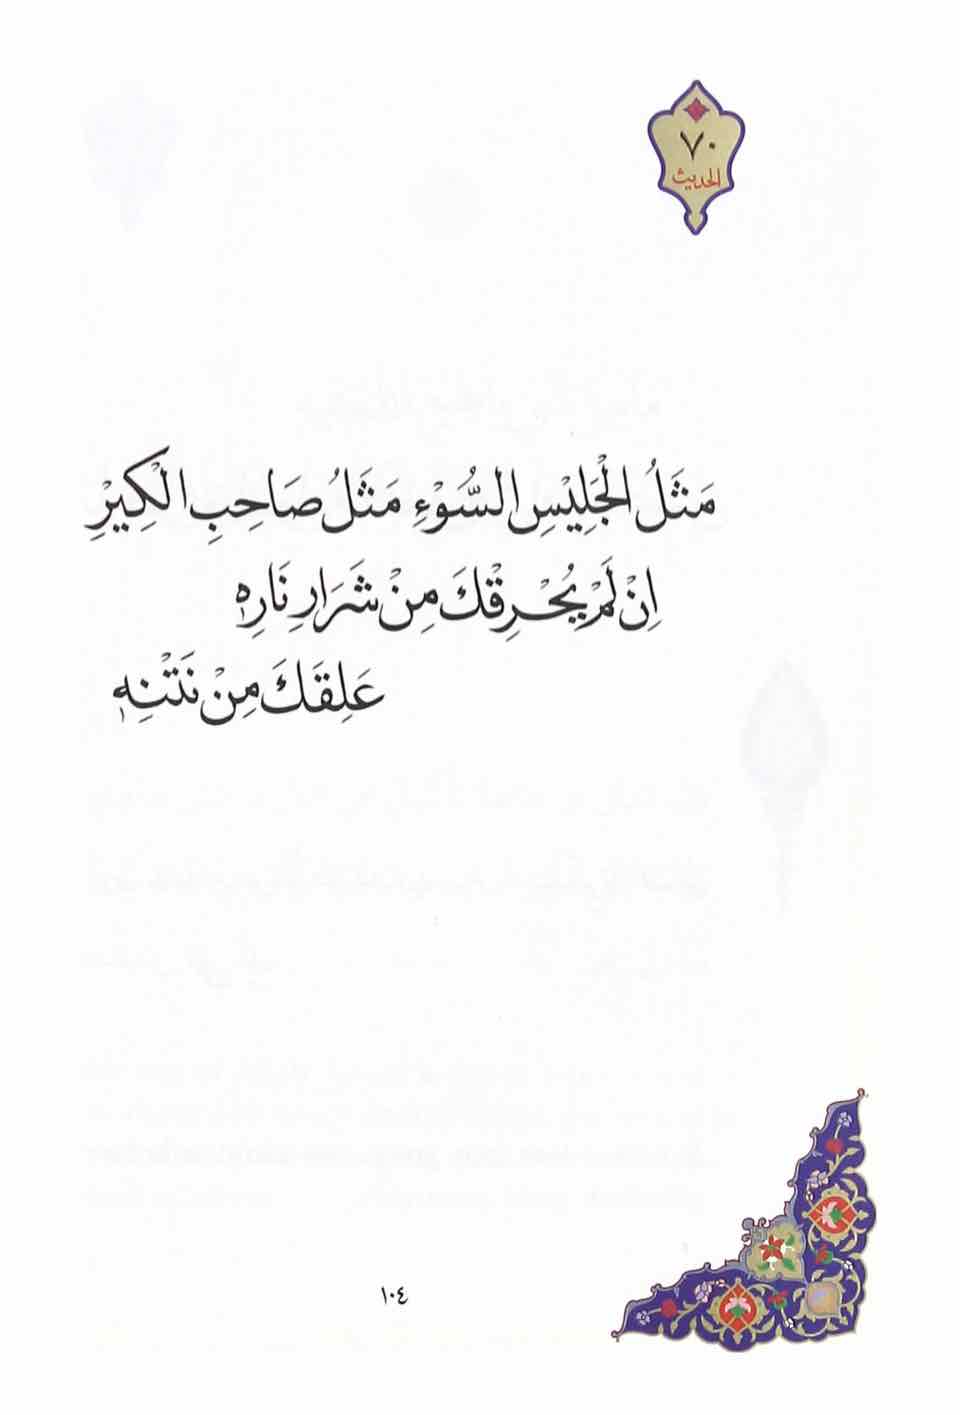 ٧٠
الحديث
مَثَلُ الْجَلِيْسِ السُّوْءِ مَثَلُ صَاحِبِ الْكِيْرِ
اِنْ لَمْ يُحْرِقْكَ مِنْ شَرَارِ نَارِهٖ
عَلِقَكَ مِنْ نَتْنِهٖ
١٠٤